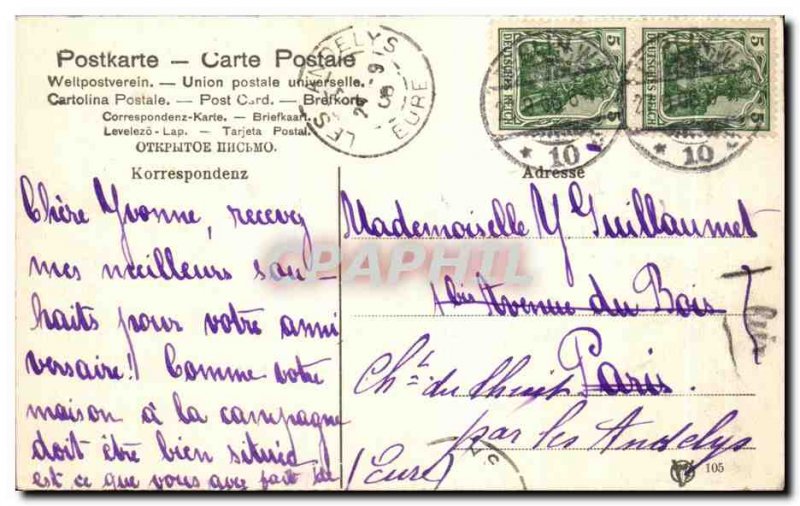 Postkarte — Carte Postale
Weltpostverein. — Union postale universelle.
Cartolina Postale. — Post Card. — Brefkort
Correspondenz-Karte. — Briefkaart
Levelező-Lap. — Tarjeta Postal.
ОТКРЫТОЕ ПИСЬМО.
Korrespondenz
Chère Yvonne, recevez
mes meilleurs sou-
haits pour votre anni
versaire! Comme votre
maison à la campagne
doit être bien située
est ce que vous avez fait de
LES ANDELYS
EURE
DEUTSCHES REICH 5
DEUTSCHES REICH 5
* 10
* 10
Adresse
Mademoiselle Y Guillaumet
1 bis Avenue du Bois
Paris.
Ch.t du Thuit
par les Andelys
(Eure)
105
CPAPHIL